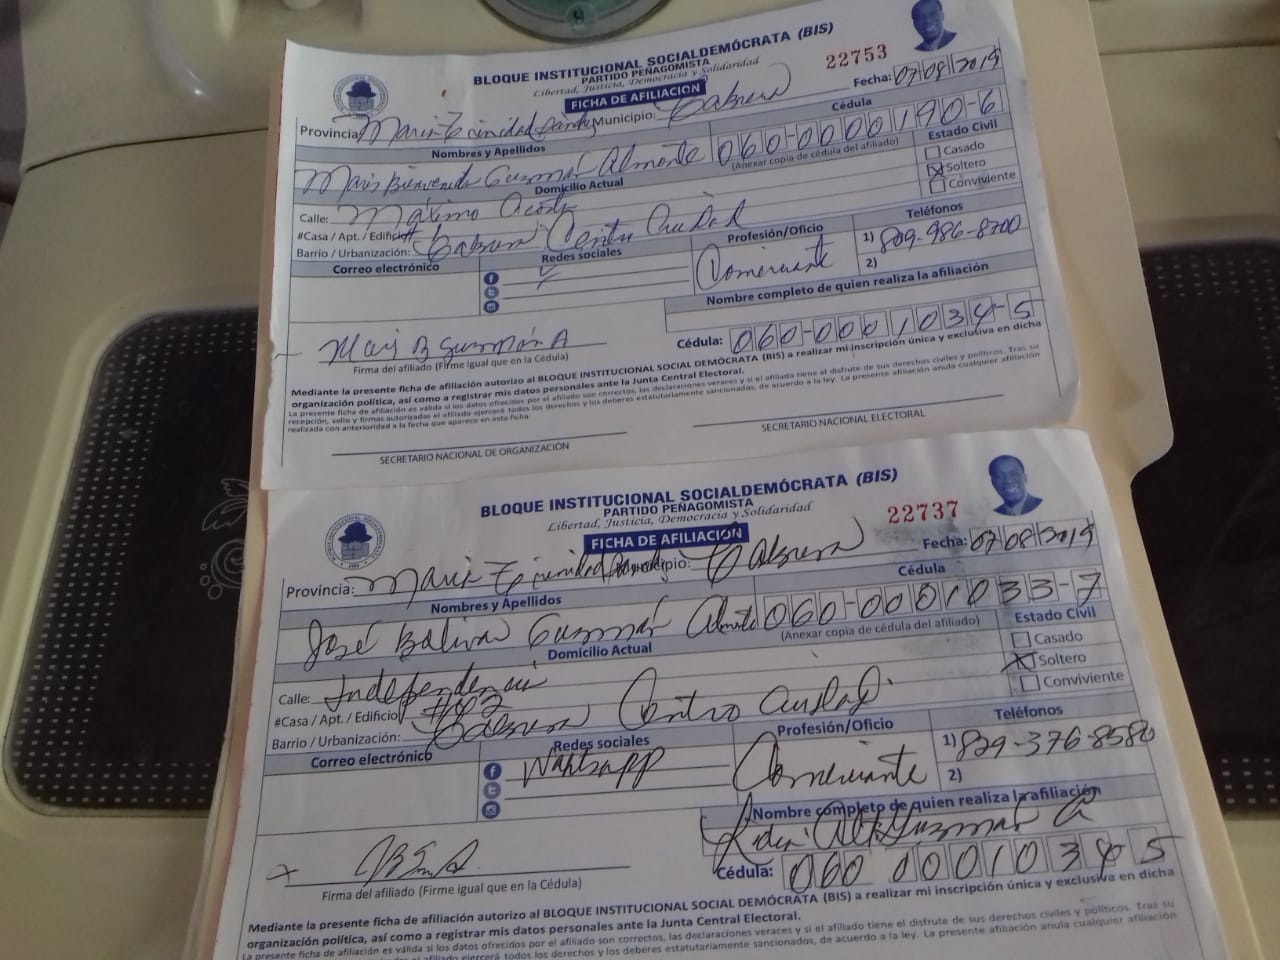 BLOQUE INSTITUCIONAL SOCIALDEMÓCRATA (BIS)
PARTIDO PEÑAGOMISTA
Libertad, Justicia, Democracia y Solidaridad
22753
FICHA DE AFILIACIÓN
Fecha: 07/08/2019
Provincia: Maria Trinidad Municipio: Cabrera
Nombres y Apellidos
Cédula
Guzmán Almonte 060-0000190-6
(Anexar copia de cédula del afiliado)
Estado Civil
Casado
Soltero
Conviviente
Domicilio Actual
Calle: Máximo Acosta
#Casa / Apt. / Edificio
Barrio / Urbanización: Cabrera Centro Ciudad
Correo electrónico
Redes sociales
Profesión/Oficio
Comerciante
Teléfonos
1) 809-986-8700
2)
Nombre completo de quien realiza la afiliación
Cédula: 060-0001034-5
B Guzmán A
Firma del afiliado (Firme igual que en la Cédula)
Mediante la presente ficha de afiliación autorizo al BLOQUE INSTITUCIONAL SOCIAL DEMÓCRATA (BIS) a realizar mi inscripción única y exclusiva en dicha
organización política, así como a registrar mis datos personales ante la Junta Central Electoral.
La presente ficha de afiliación es válida si los datos ofrecidos por el afiliado son correctos, las declaraciones veraces y si el afiliado tiene el disfrute de sus derechos civiles y políticos. Tras su
recepción, sello y firmas autorizadas el afiliado ejercerá todos los derechos y los deberes estatutariamente sancionados, de acuerdo a la ley. La presente afiliación anula cualquier afiliación
realizada con anterioridad a la fecha que aparece en esta ficha.
SECRETARIO NACIONAL DE ORGANIZACIÓN
SECRETARIO NACIONAL ELECTORAL
BLOQUE INSTITUCIONAL SOCIALDEMÓCRATA (BIS)
PARTIDO PEÑAGOMISTA
Libertad, Justicia, Democracia y Solidaridad
22737
FICHA DE AFILIACIÓN
Fecha: 07/08/2019
Provincia: Maria Trinidad Cabrera
Nombres y Apellidos
Cédula
José Bolívar Guzmán Almonte 060-0001033-7
(Anexar copia de cédula del afiliado)
Estado Civil
Casado
Soltero
Conviviente
Domicilio Actual
Calle: Independencia
#Casa / Apt. / Edificio
Barrio / Urbanización: Cabrera Centro Ciudad
Correo electrónico
Redes sociales
Whatsapp
Profesión/Oficio
Comerciante
Teléfonos
1) 829-376-8580
2)
Nombre completo de quien realiza la afiliación
Guzmán
Cédula: 060 0001034 5
Firma del afiliado (Firme igual que en la Cédula)
Mediante la presente ficha de afiliación autorizo al BLOQUE INSTITUCIONAL SOCIAL DEMÓCRATA (BIS) a realizar mi inscripción única y exclusiva en dicha
organización política, así como a registrar mis datos personales ante la Junta Central Electoral.
La presente ficha de afiliación es válida si los datos ofrecidos por el afiliado son correctos, las declaraciones veraces y si el afiliado tiene el disfrute de sus derechos civiles y políticos. Tras su
el afiliado ejercerá todos los derechos y los deberes estatutariamente sancionados, de acuerdo a la ley. La presente afiliación anula cualquier afiliación